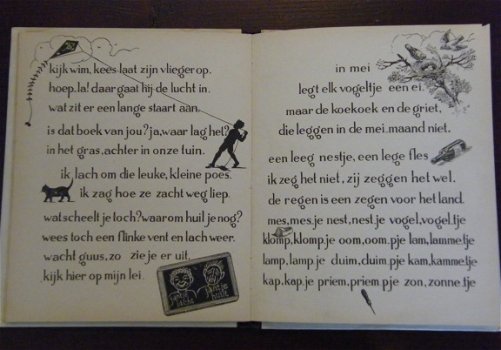 kijk wim, kees laat zijn vlieger op.
hoep.la! daar gaat hij de lucht in.
wat zit er een lange staart aan.
is dat boek van jou? ja, waar lag het?
in het gras, achter in onze tuin.
ik lach om die leuke, kleine poes.
ik zag hoe ze zacht weg liep.
wat scheelt je toch? waarom huil je nog?
wees toch een flinke vent en lach weer.
wacht guus, zo zie je er uit.
kijk hier op mijn lei.
in mei
legt elk vogeltje een ei.
maar de koekoek en de griet,
die leggen in de mei.maand niet.
een leeg nestje, een lege fles
ik zeg het niet, zij zeggen het wel.
de regen is een zegen voor het land.
mes, mes.je nest, nest.je vogel, vogel.tje
klomp, klomp.je oom, oom.pje lam, lamme.tje
lamp, lamp.je duim, duim.pje kam, kamme.tje
kap, kap.je priem, priem.pje zon, zonne.tje